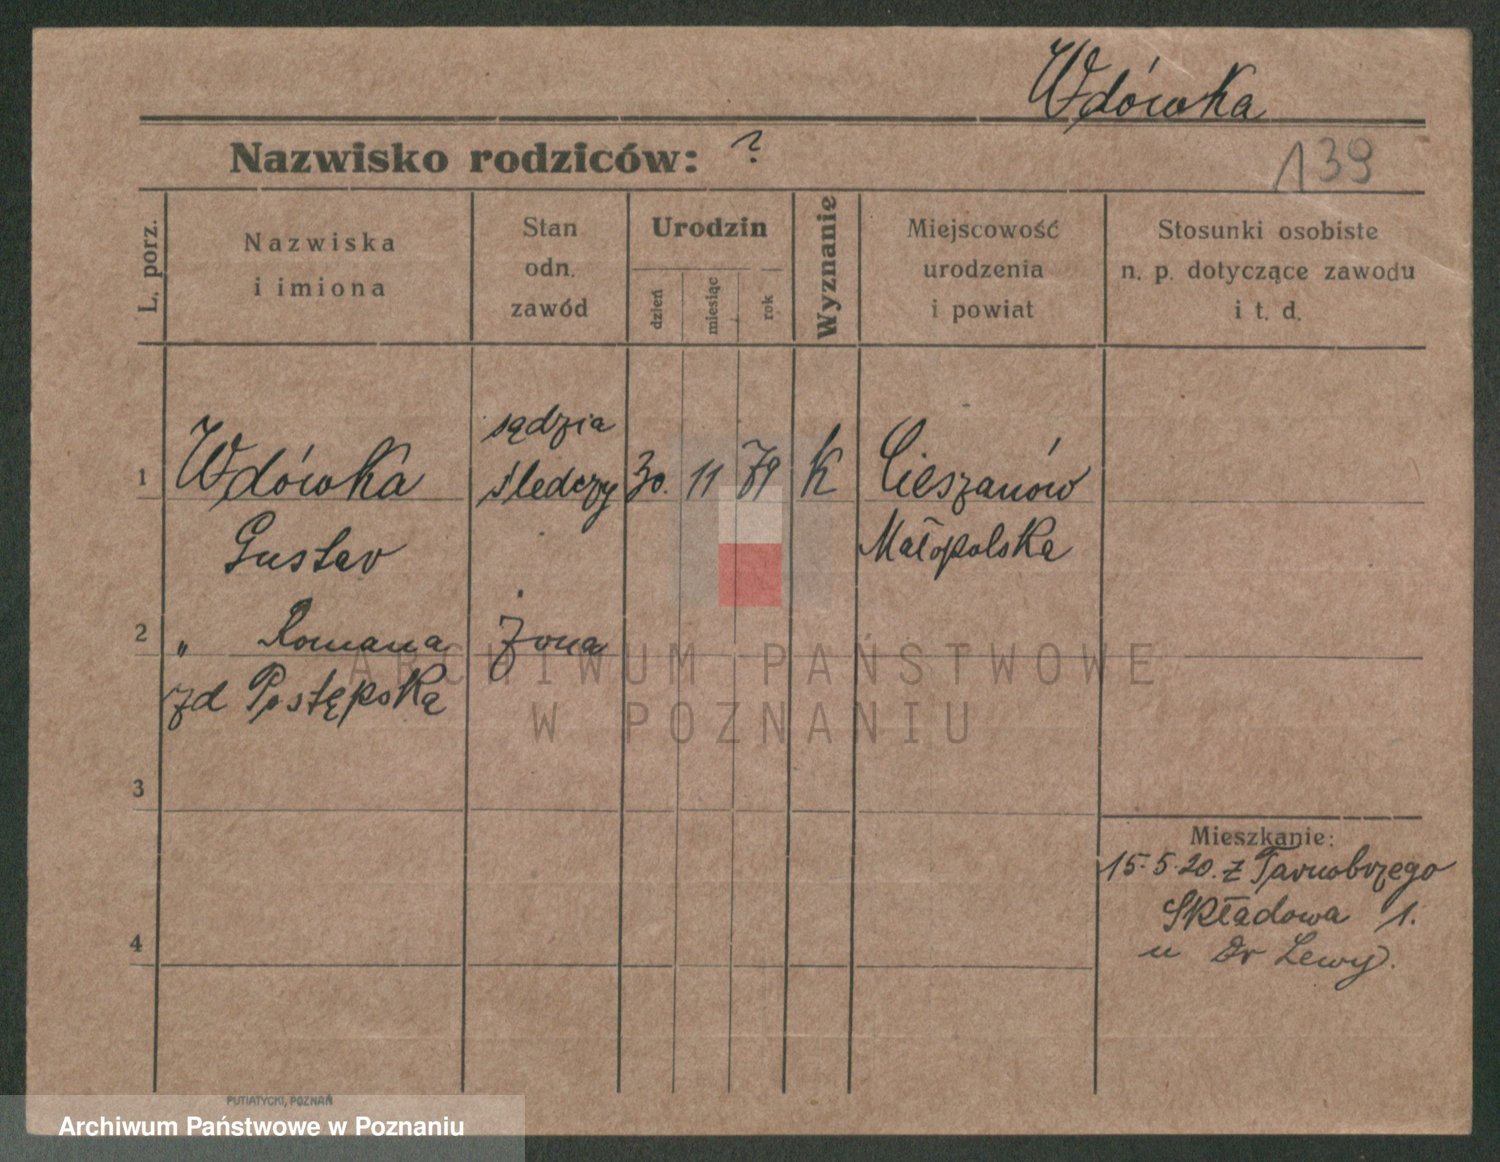 Wdówka
Nazwisko rodziców: ?
139
L. porz.
Nazwiska
i imiona
Stan
odn.
zawód
Urodzin
dzień
miesiąc
rok
Wyznanie
Miejscowość
urodzenia
i powiat
Stosunki osobiste
n. p. dotyczące zawodu
i t. d.
sądzia
1 Wdówka śledczy 30. 11 79 K Cieszanów
Gustav Małopolska
2 " Romana Żona
zd Postępska
ARCHIWUM PAŃSTWOWE
W POZNANIU
3
Mieszkanie:
15.5.20. z Tarnobrzego
Składowa 1.
4
u Dr Lewy.
PUTIATYCKI, POZNAŃ
Archiwum Państwowe w Poznaniu